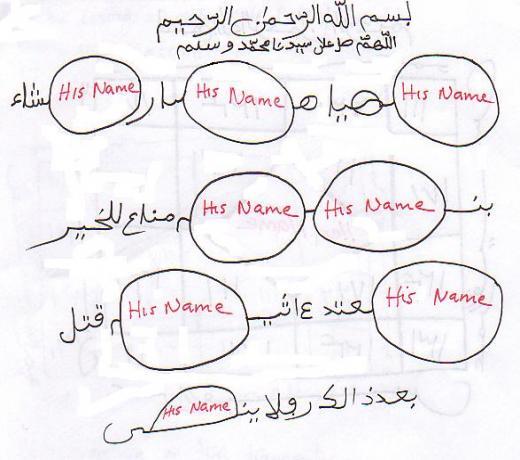 بسم الله الرحمن الرحيم
اللهم صل على سيدنا محمد وسلم
His Name His Name ـار His Name شاء
بنـ His Name His Name ـم مناع للخير
His Name ـعتد ع اثيـ His Name ـم قتل
بعدذ الك His Name